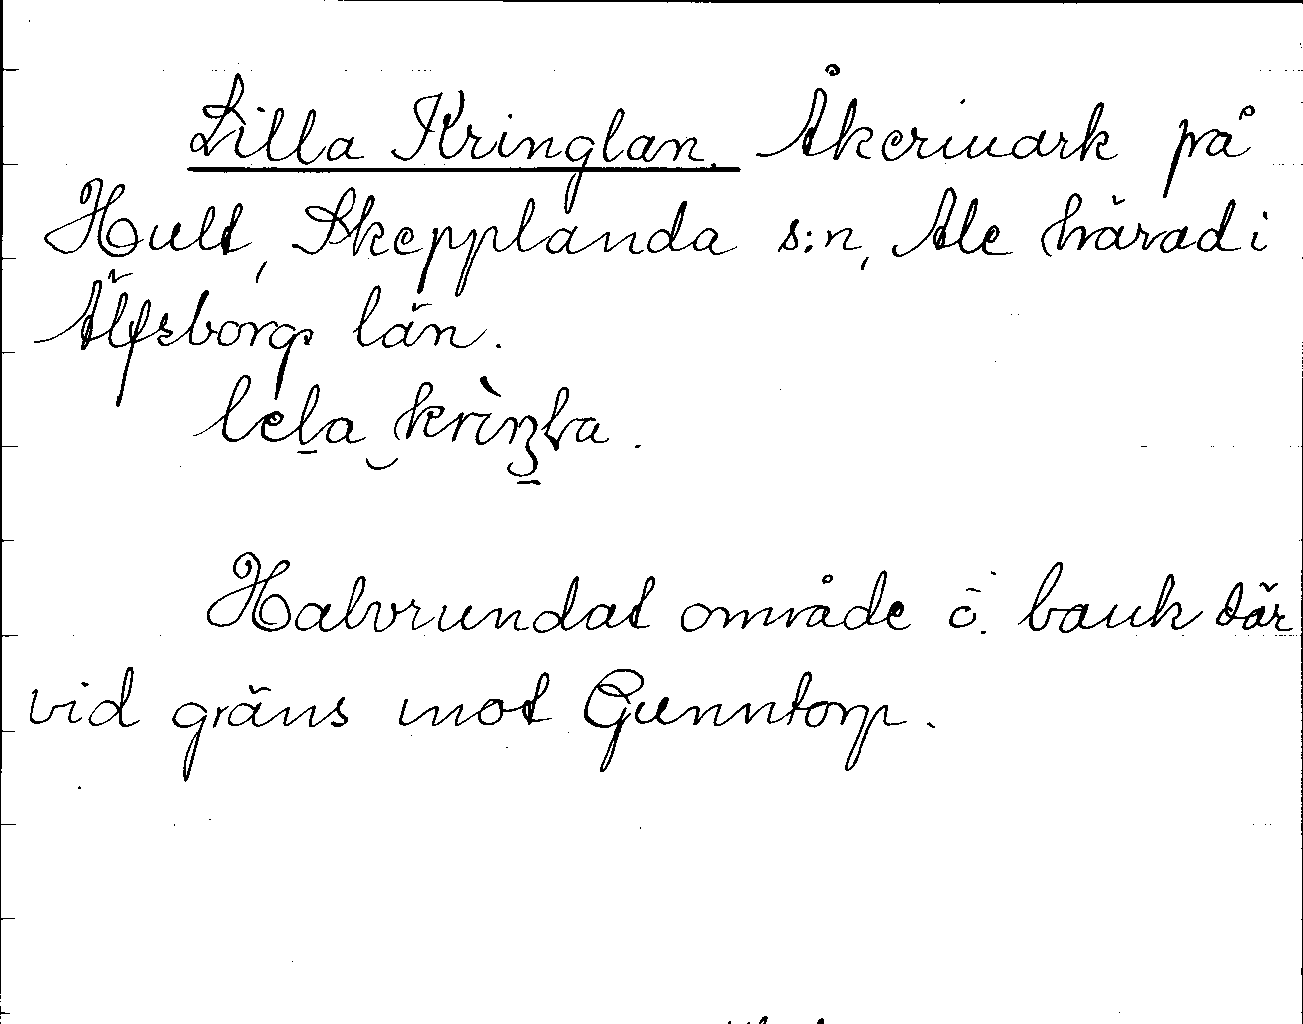 Lilla Kringlan. Åkermark på
Hult, Skepplanda s:n, Ale härad i
Älfsborgs län.
Halvrundat område ö. bauk där
vid gräns mot Gunntorp.